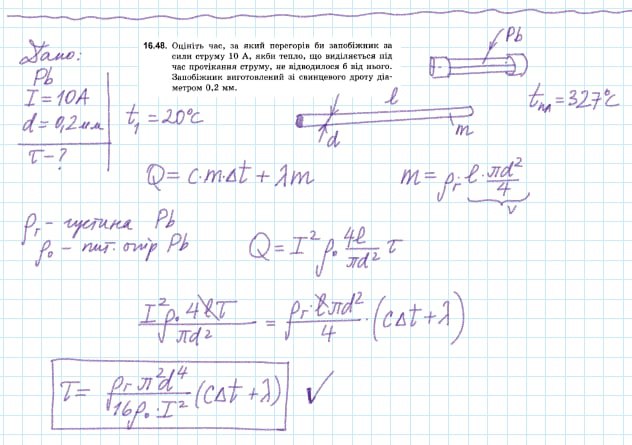 16.48. Оцініть час, за який перегорів би запобіжник за
сили струму 10 А, якби тепло, що виділяється під
час протікання струму, не відводилося б від нього.
Запобіжник виготовлений зі свинцевого дроту діа-
метром 0,2 мм.
Дано:
Pb
I = 10A
d = 0,2 мм
τ - ?
t₁ = 20°C
Pb
l
d
m
tпл = 327°C
Q = c·m·Δt + λm
m = ρг · l · πd²/4
V
ρг - густина Pb
ρ₀ - пит. опір Pb
Q = I² ρ₀ 4l/πd² τ
I² ρ₀ 4lτ/πd² = ρг · lπd²/4 · (cΔt + λ)
τ = ρг π²d⁴/16ρ₀ · I² (cΔt + λ) ✓